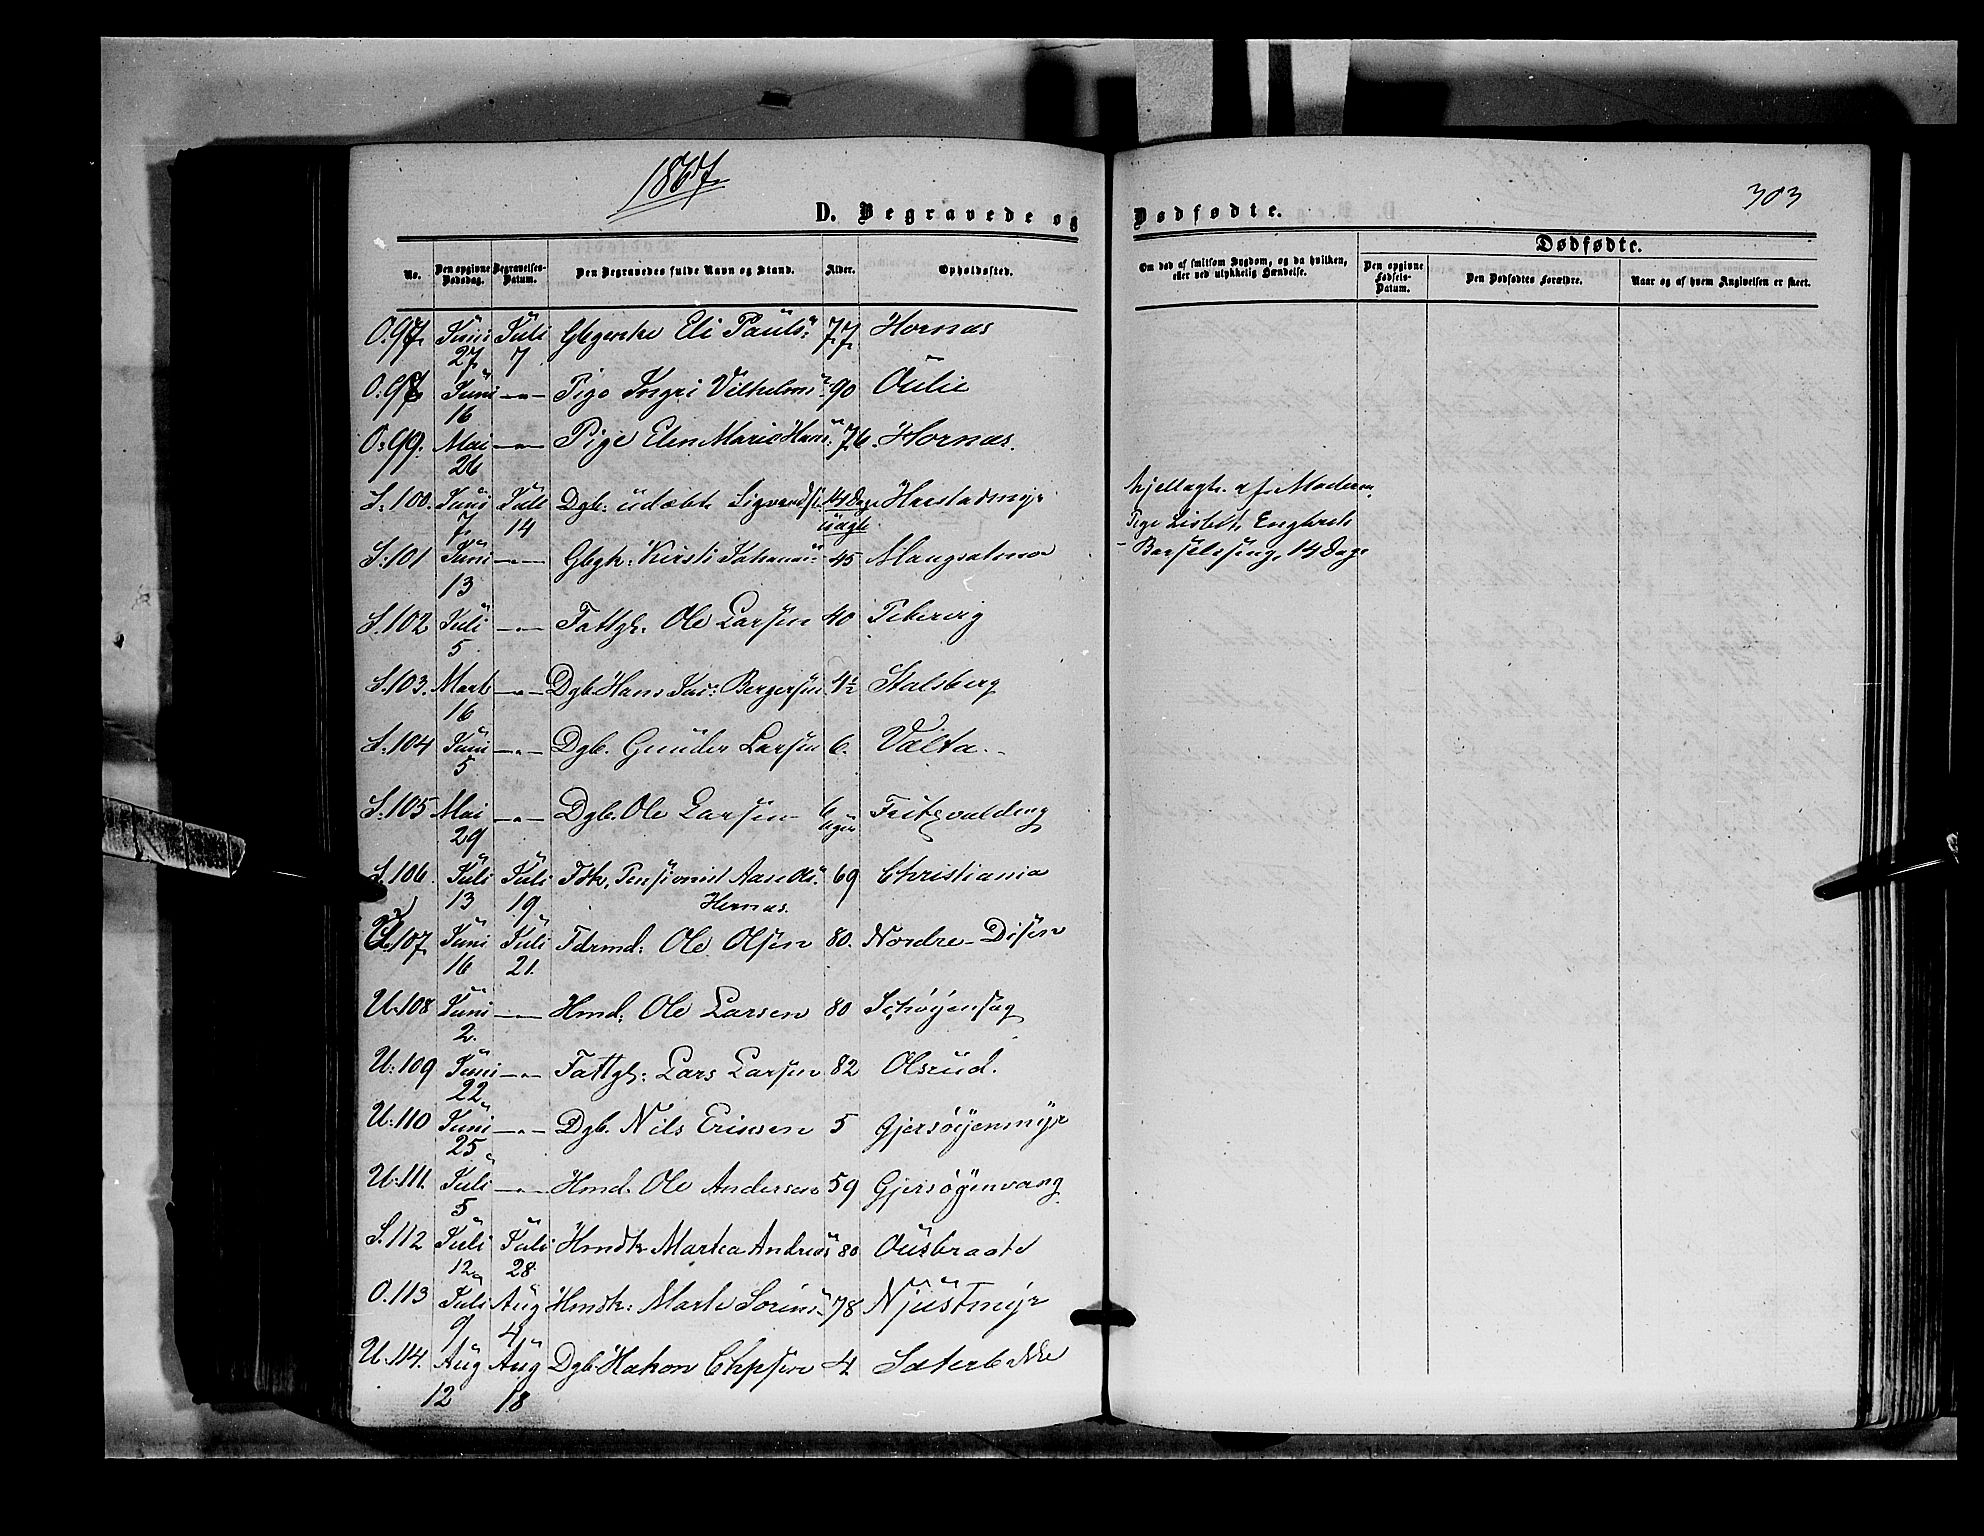 1867
303
D. Begravede og Dødfødte.
Dødfødte.
No. Den opgivne Dødsdag. Begravelses-Datum. Den Begravedes fulde Navn og Stand. Alder. Opholdssted. Om død af smitsom Sygdom, og da hvilken, eller ved ulykkelig Hændelse. Den opgivne Fødsels-Datum. Den Dødfødtes Forældre. Naar og af hvem Angivelsen er skeet.
O. 97. Juni 27 Juli 7 Eli Pauls: 77 Hornæs
O. 98 Juni 16 -"- Pige Ingri Vilhelms: 90 Oulie
O: 99. Mai 26 -"- Pige Elen Marie Hans: 76. Hornæs.
S. 100. Juni 7 Juli 14 Dgb: udøbt Sigvards: 14 Dage uægte Harstadmyr
ihjellagt af Moderen,
Pige Lisbeth Engbrets
S. 101 Juni 13 -"- Kirsti Johannes: 45 Mangsatmo - Barselseng, 14 Dage
S. 102 Juli 5 -"- Fattgl. Ole Larsen 40 Pibervig
S. 103. Marts 16 -"- Dgb. Hans Jac: Bergersen 4½ Stalsberg
S. 104 Juni 5 -"- Dgb. Gunder Larsen 6. Vælta.
S. 105 Mai 29 -"- Dgb. Ole Larsen 6 Uger Fritzvaldeng
S. 106. Juli 13 Juli 19 Fdk. Pensionist Aase Ols: Hernæs. 69 Christiania
U. 107 Juni 16 Juli 21. Fdrmd: Ole Olsen 80. Nordre-Disen
U. 108 Juni 2. -"- Hmd: Ole Larsen 80 Schøyensag
U: 109 Juni 22 -"- Fattgl: Lars Larsen 82 Olsrud.
U: 110 Juni 25 -"- Dgb. Nils Erissen 5 Gjersøyenmyr
U: 111. Juli 5 -"- Hmd. Ole Andersen 59 Gjersøyenvang
S. 112 Juli 12 Juli 28 Hmdk Martea Andreas 80 Ousbraate
O. 113 Juli 9 Aug 4 Hmdk: Marte Sørens: 78 Njustmyr
U. 114. Aug 12 Aug 18 Dgb Hakon Chrpsen 4 Sæterbekke